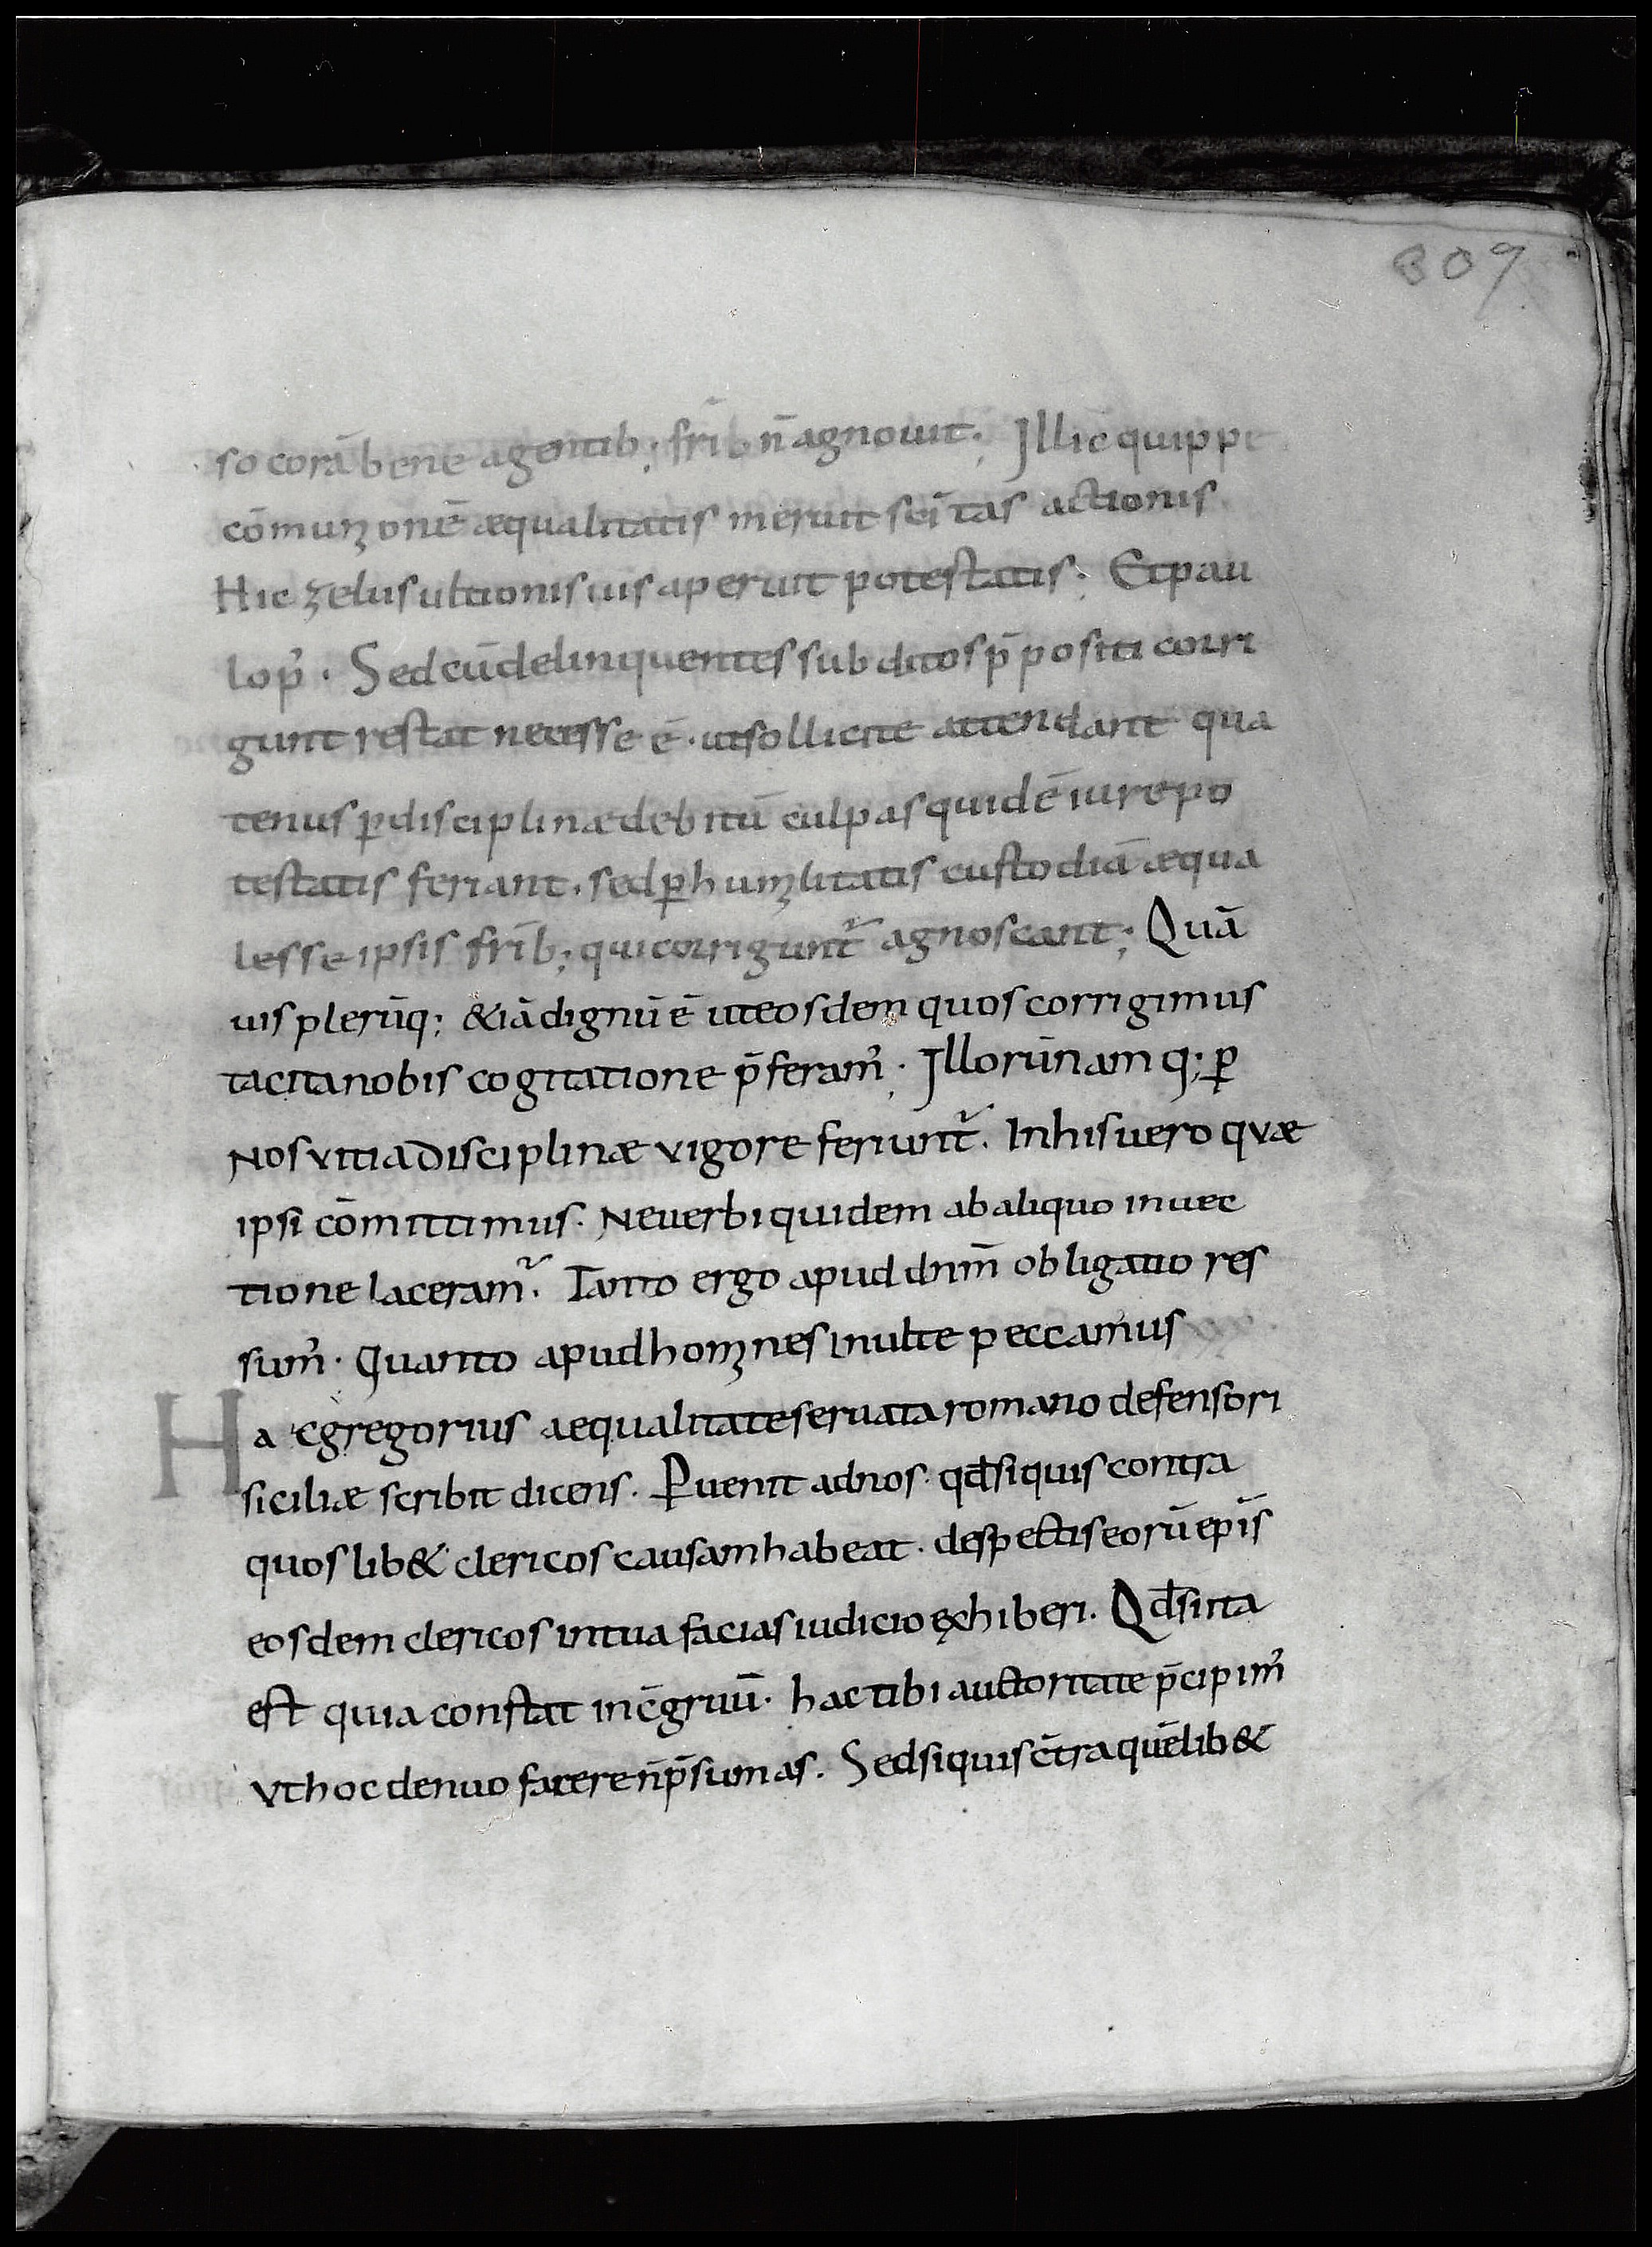 809
so corā bene agentib; frīb n̄ agnouit; Illic quippe
cōmunionē æqualitatis meruit scītas actionis
Hic zelus ultionis ius aperuit potestatis. Et pau
lo p᷒. Sed cū delinquentes subditos p̄positi corri
gunt restat necesse ē. ut sollicite attendant qua
tenus ꝑ disciplinæ debitū culpas quidē iure po
testatis feriant. sed ꝑ humilitatis custodiā æqua
les se ipsis frīb; qui corriguntᷣ agnoscant; Quā
uis plerūq; & iā dignū ē ut eosdem quos corrigimus
tacita nobis cogitatione p̄feram᷒. Illorū namq; ꝑ
Nos vitia disciplinæ vigore feriuntᷣ. In his uero quæ
ipsi cōmittimus. Ne uerbi quidem ab aliquo inuec
tione laceramᷣ. Tanto ergo apud dnm̄ obligatio res
sum᷒. Quanto apud homines inulte peccamus
Hac gregorius aequalitate seruata romano defensori
siciliæ scribit dicens. Ꝑuenit ad nos. qđ si quis contra
quoslib& clericos causam habeat. despectis eorū ep̄is
eosdem clericos in tua facias iudicio exhiberi. Qđ si ita
est quia constat inc̄gruū. hac tibi auctoritate p̄cipim᷒
Vt hoc denuo facere n̄ p̄sumas. Sed si quis c̄tra quēlib&